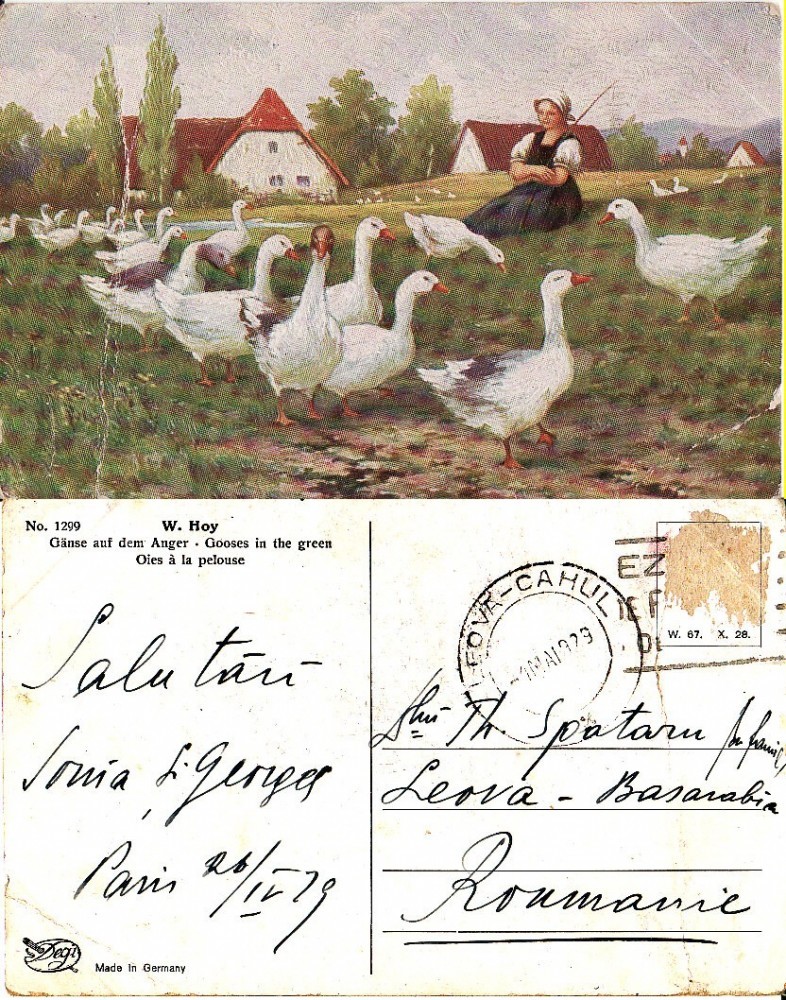 No. 1299
W. Hoy
Gänse auf dem Anger · Gooses in the green
Oies à la pelouse
Salutări
Sonia și Georges
Paris 26/IV 29
Degi
Made in Germany
LEOVA-CAHUL
1 MAI 929
EZ
IE F
W. 67. X. 28.
Dlui Th. Spataru
Leova - Basarabia
Roumanie